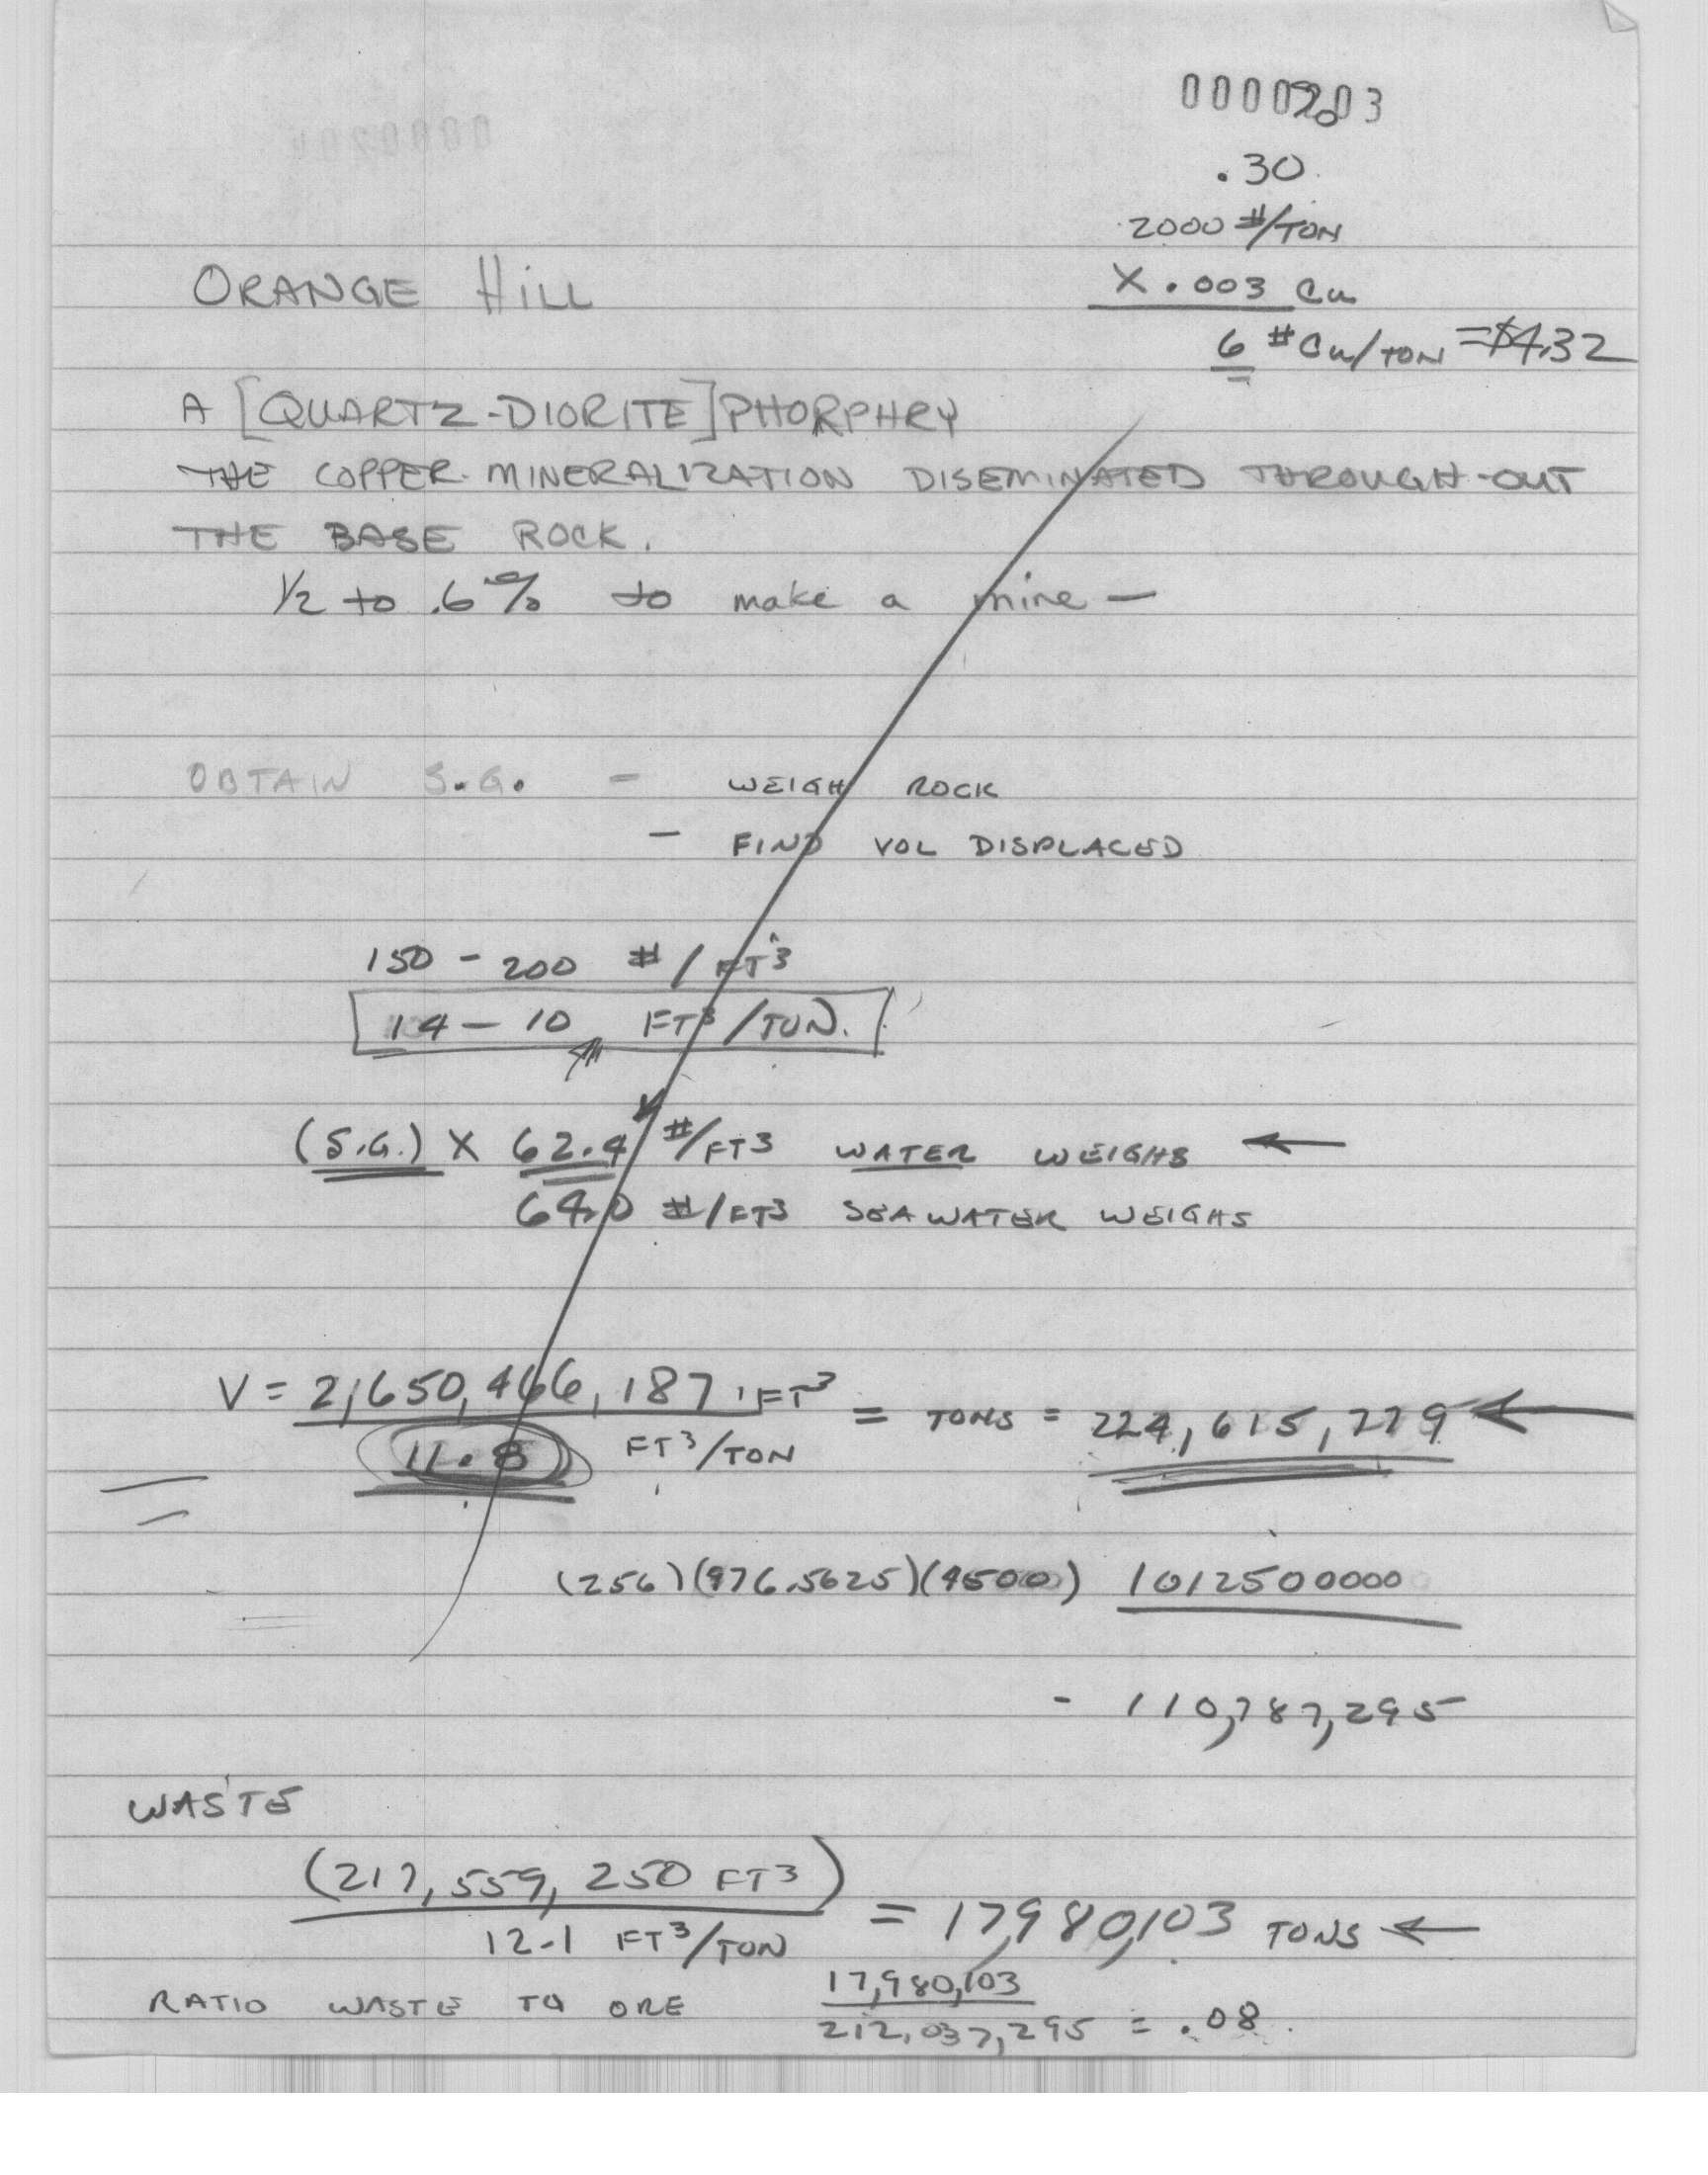 0000203
.30
2000 #/TON
X .003 Cu
6 # Cu/TON = $4.32
ORANGE HILL
A [QUARTZ-DIORITE] PHORPHRY
THE COPPER MINERALIZATION DISEMINATED THROUGH-OUT
THE BASE ROCK.
1/2 to .6% to make a mine —
OBTAIN S.G. - WEIGH ROCK
- FIND VOL DISPLACED
150 - 200 #/FT³
14 - 10 FT³/TON.
(S.G.) X 62.4 #/FT³ WATER WEIGHS ←
64.0 #/FT³ SEAWATER WEIGHS
V = 2,650,466,187 FT³ = TONS = 224,615,779 ←
11.8 FT³/TON
(256)(976.5625)(4500) 1012500000
- 110,787,295
WASTE
(217,559,250 FT³) = 17,980,103 TONS ←
12.1 FT³/TON
RATIO WASTE TO ORE 17,980,103
212,037,295 = .08